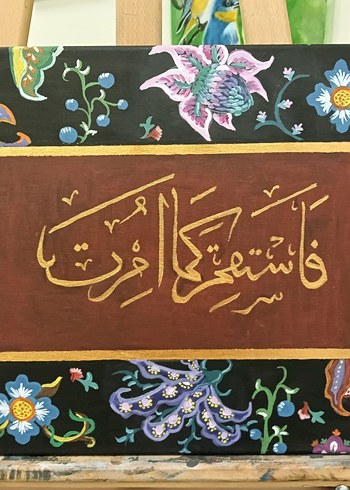 فَاستَقِم كَمَا اُمِرتَ